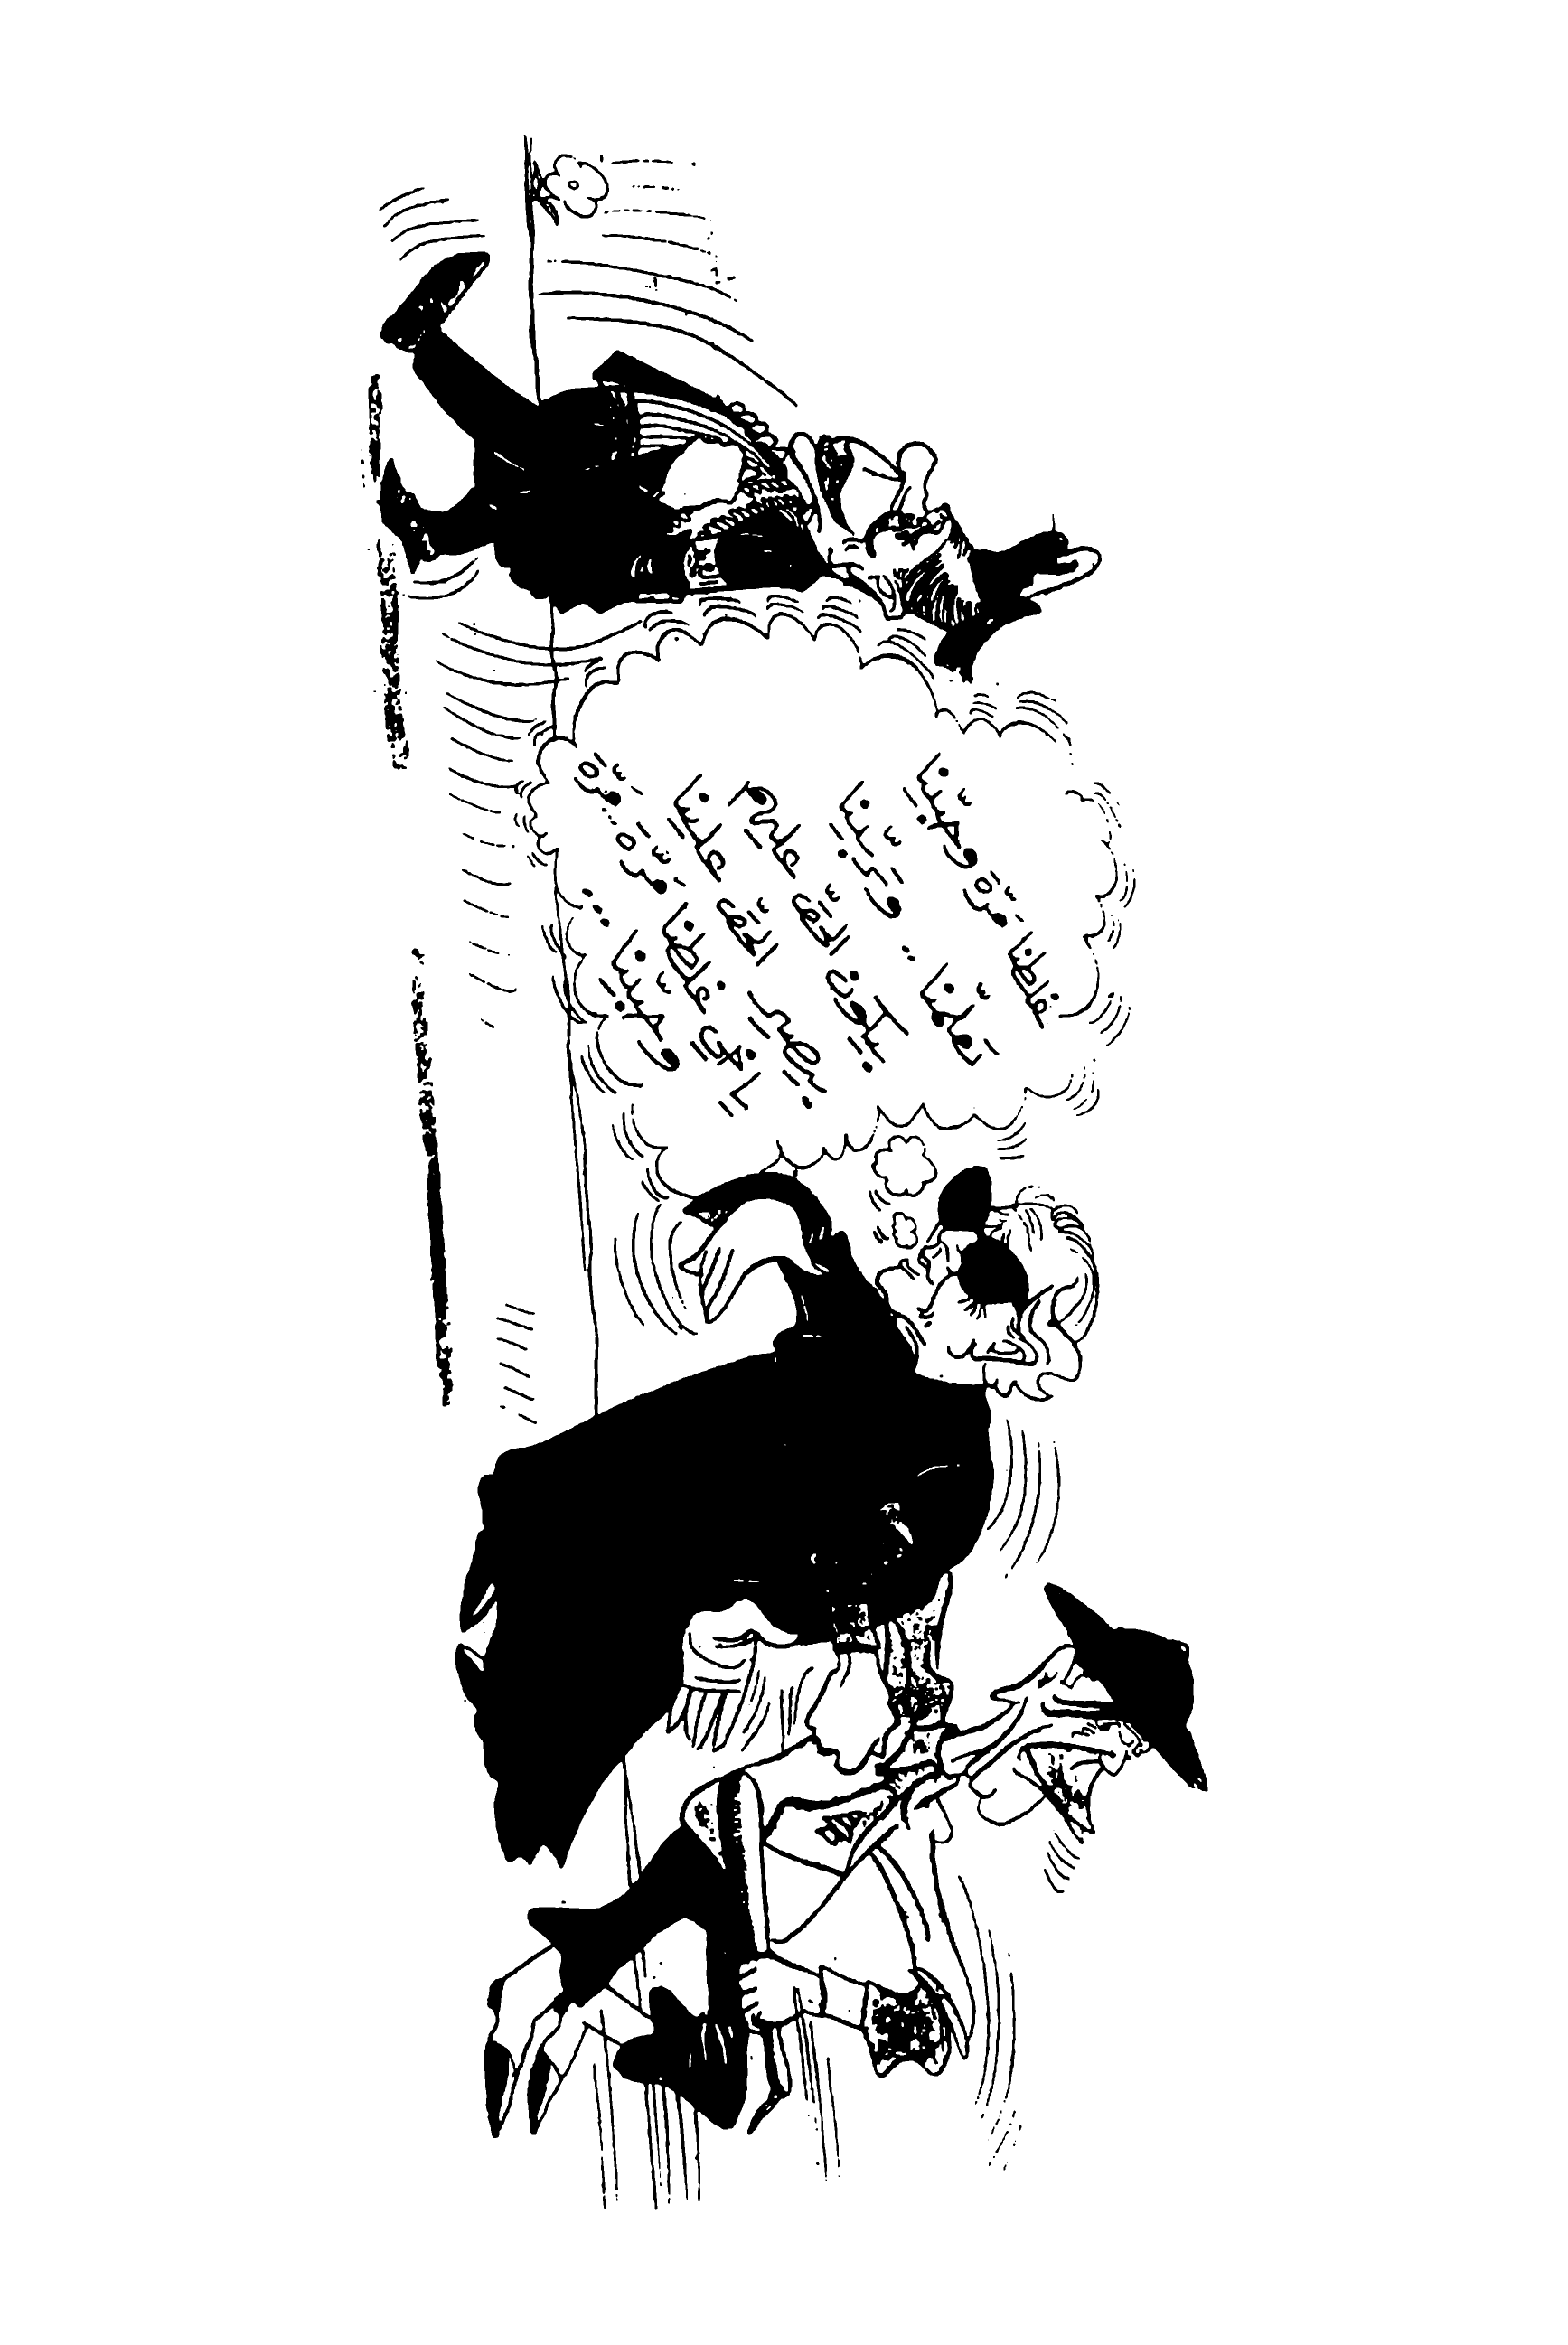 غلطنا مرّة وحبّينا
تعلّمنا .. وتربّينا
بيكون الحقّ عليهم
بيصير الحقّ علينا
يا خيّ غلطنا مرّة . مرّة
وحبّينا ..